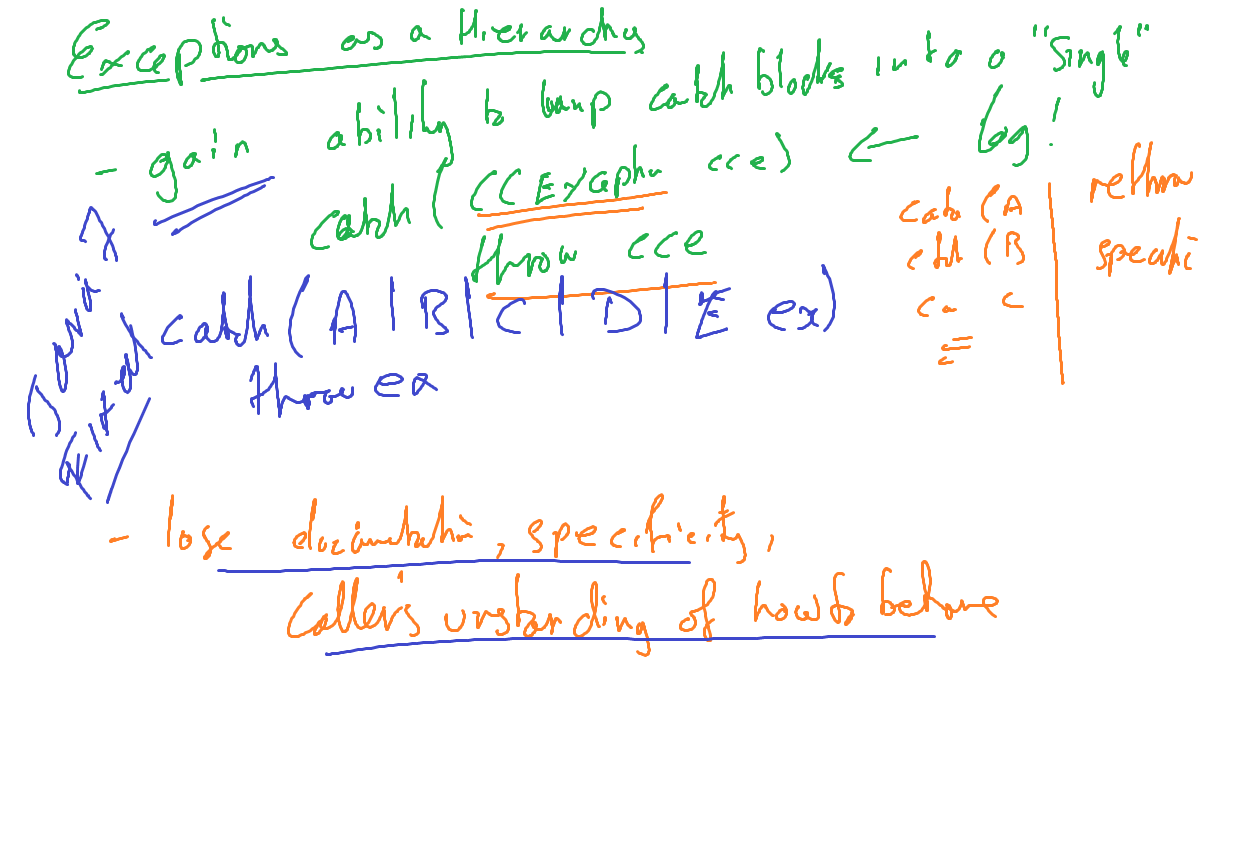 Exceptions as a Hierarchy
- gain ability to lump catch blocks into a "Single"
catch (CCException cce) ← log!
throw cce
catch (A
catch (B
ca C
rethrow
specific
catch (A | B | C | D | E ex)
throw ex
- lose documentation, specificity,
Callers unstanding of how to behave